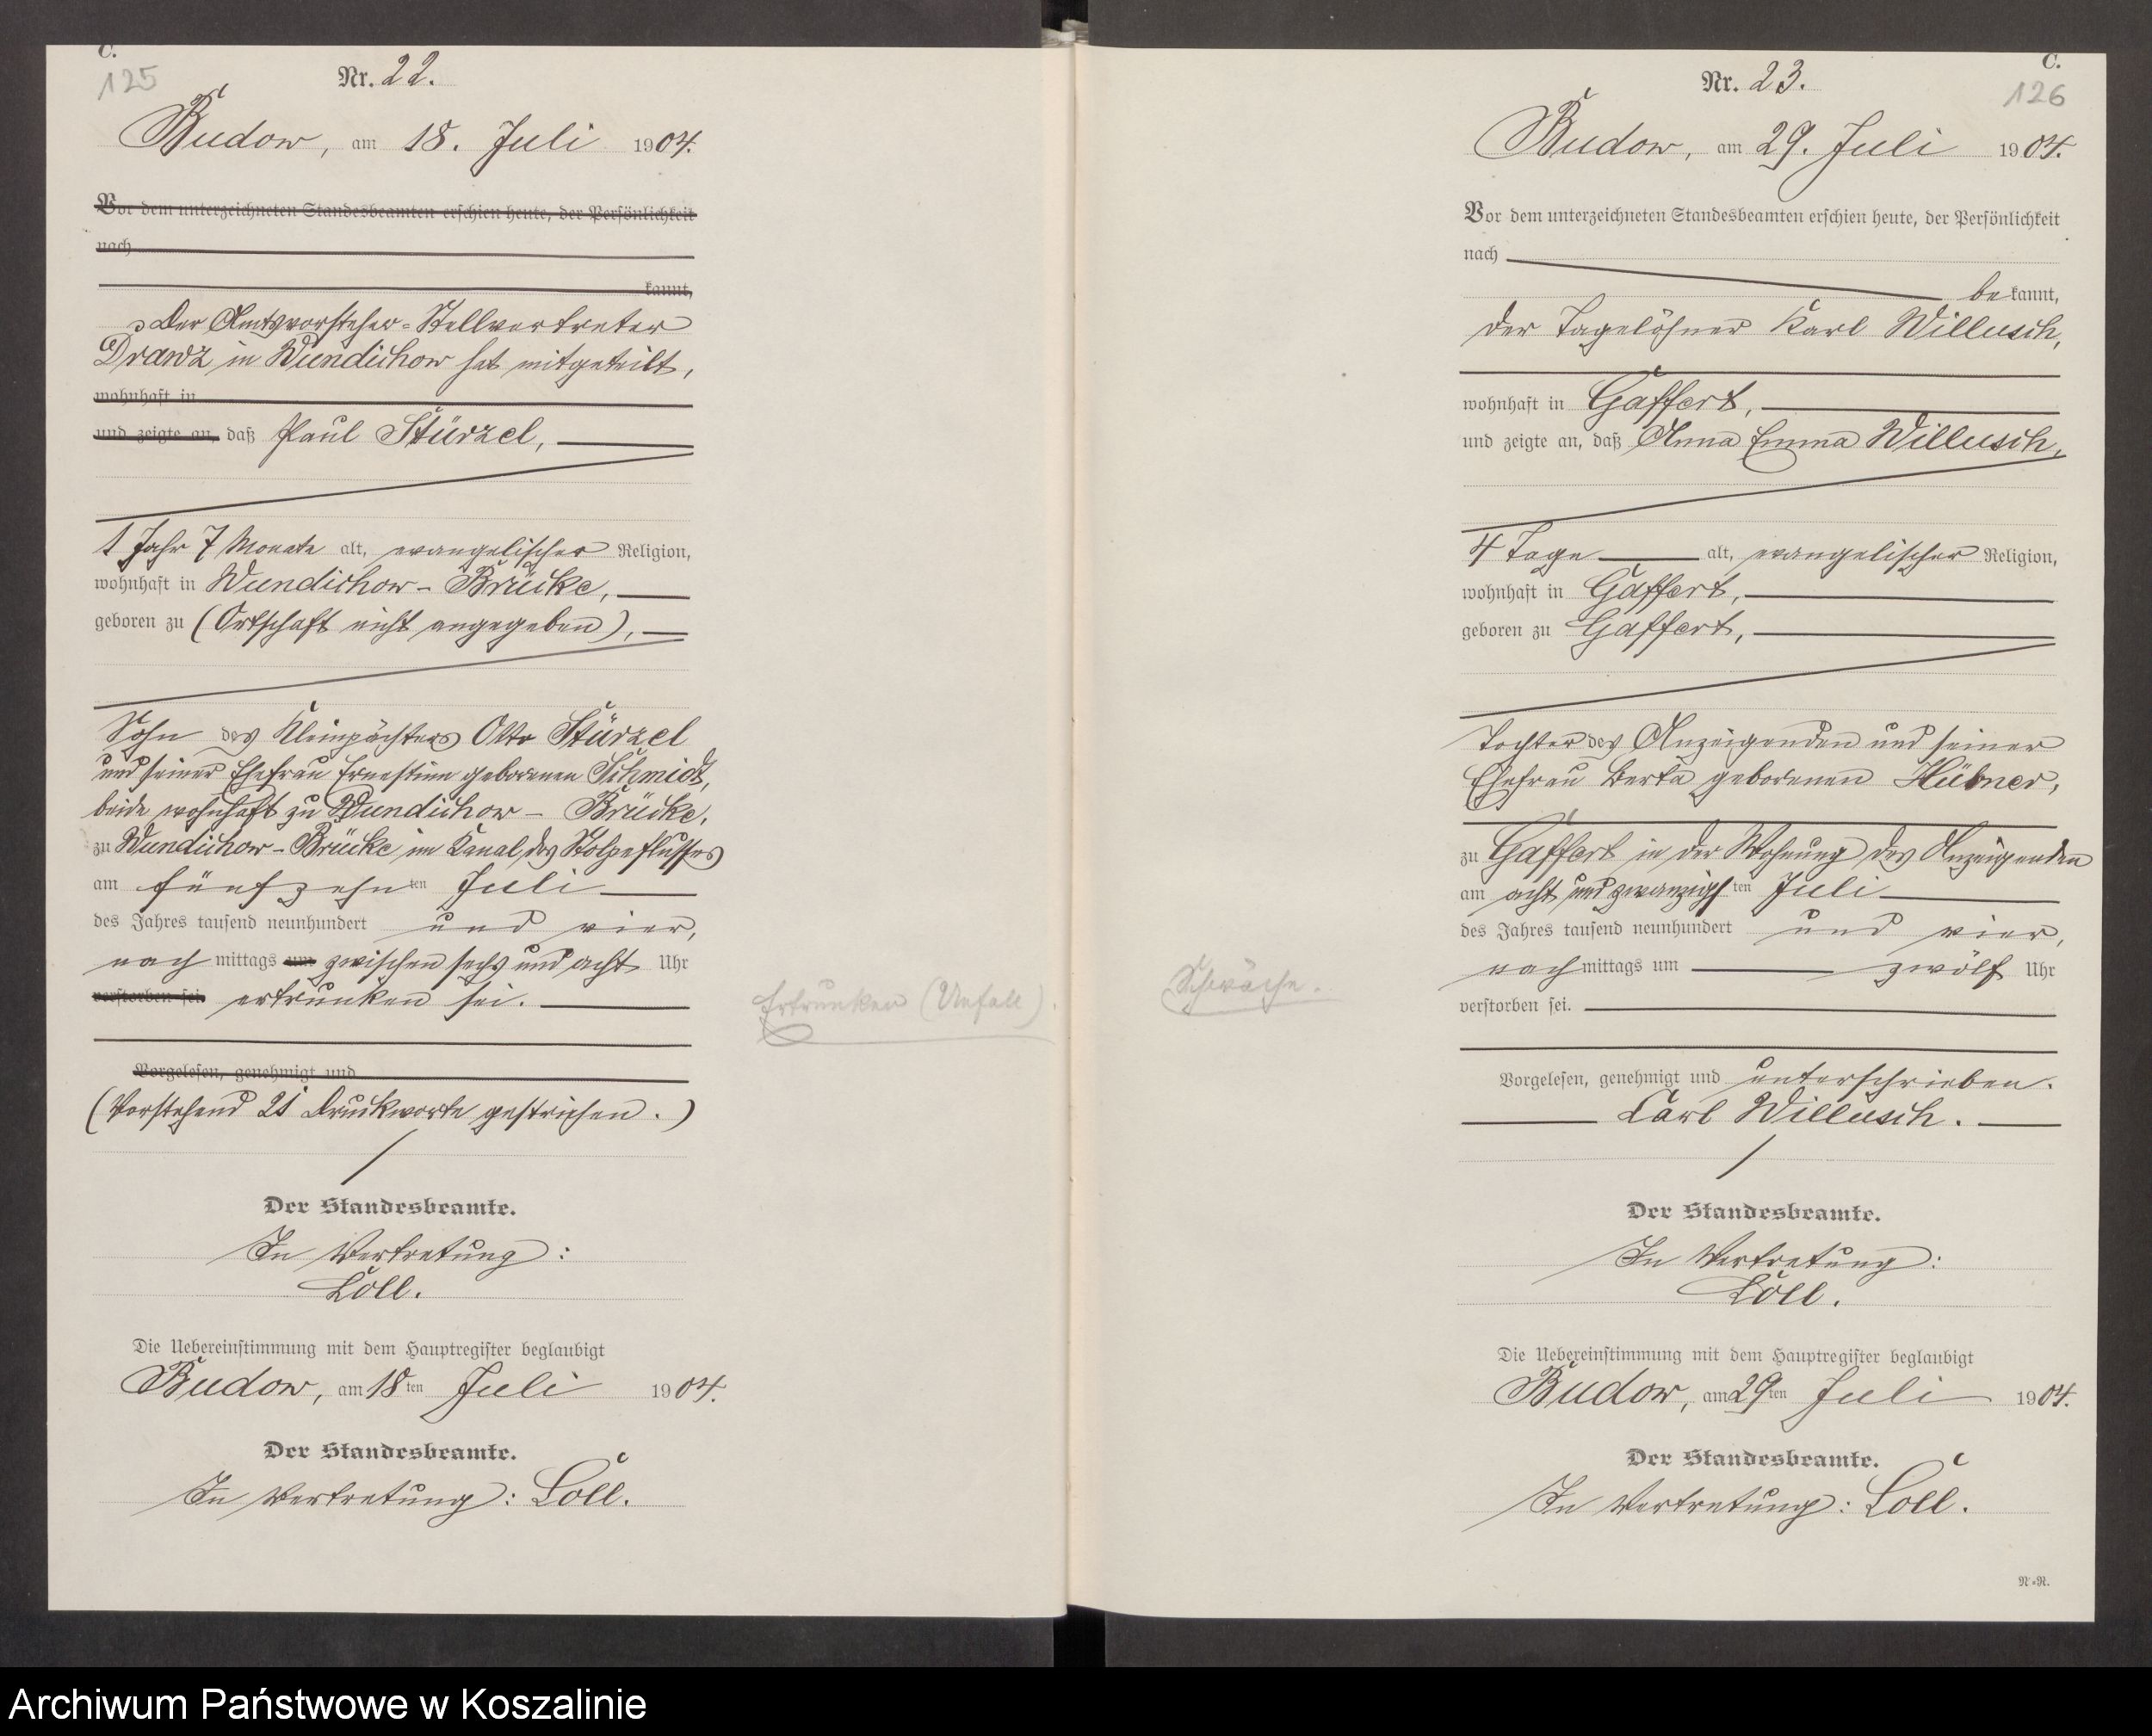 C.
125
Nr. 22.
Budow, am 18. Juli 1904.
Vor dem unterzeichneten Standesbeamten erschien heute, der Persönlichkeit
nach
kannt,
Der Amtsvorsteher-Stellvertreter
Drawz in Wundichow hat mitgeteilt,
wohnhaft in
und zeigte an, daß Paul Stürzel,
1 Jahr 7 Monate alt, evangelischer Religion,
wohnhaft in Wundichow-Brücke,
geboren zu (Ortschaft nicht angegeben),
Sohn des Kleinpächters Otto Stürzel
und seiner Ehefrau Ernestine geborenen Schmidt,
beide wohnhaft zu Wundichow-Brücke,
zu Wundichow-Brücke im Kanal des Stolpeflusses
am fünfzehnten Juli
des Jahres tausend neunhundert und vier,
nachmittags um zwischen sechs und acht Uhr
verstorben sei. ertrunken sei.
Ertrunken (Unfall).
Vorgelesen, genehmigt und
(Vorstehend 21 Druckworte gestrichen.)
Der Standesbeamte.
In Vertretung:
Loll.
Die Uebereinstimmung mit dem Hauptregister beglaubigt
Budow, am 18ten Juli 1904.
Der Standesbeamte.
In Vertretung: Loll.
C.
126
Nr. 23.
Budow, am 29. Juli 1904.
Vor dem unterzeichneten Standesbeamten erschien heute, der Persönlichkeit
nach
bekannt,
der Tagelöhner Karl Willusch,
wohnhaft in Gaffert,
und zeigte an, daß Anna Emma Willusch,
4 Tage alt, evangelischer Religion,
wohnhaft in Gaffert,
geboren zu Gaffert,
Tochter des Anzeigenden und seiner
Ehefrau Berta geborenen Hübner,
zu Gaffert in der Wohnung des Anzeigenden
am acht und zwanzigsten Juli
des Jahres tausend neunhundert und vier,
nachmittags um zwölf Uhr
verstorben sei.
Schwäche.
Vorgelesen, genehmigt und unterschrieben.
Carl Willusch.
Der Standesbeamte.
In Vertretung:
Loll.
Die Uebereinstimmung mit dem Hauptregister beglaubigt
Budow, am 29ten Juli 1904.
Der Standesbeamte.
In Vertretung: Loll.
N.-R.
Archiwum Państwowe w Koszalinie